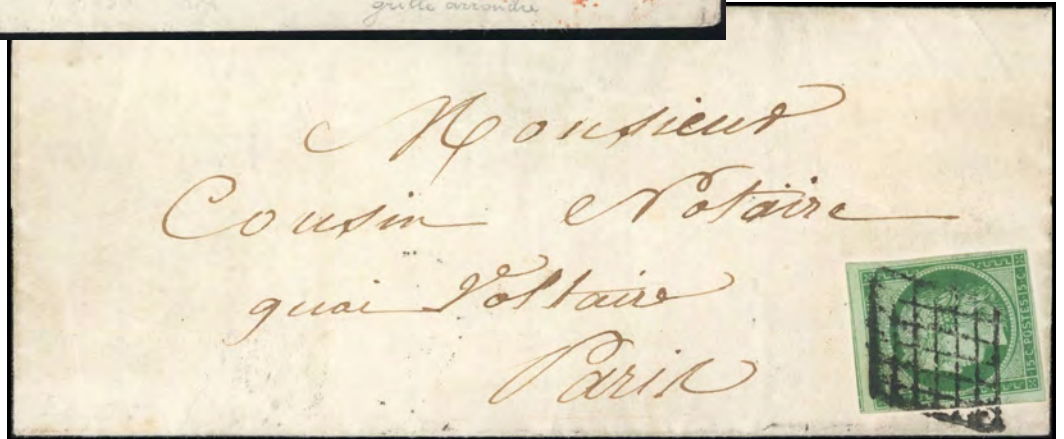 grille arrondie
Monsieur
Cousin Notaire
quai Voltaire
Paris
15 c. POSTES 15 c.